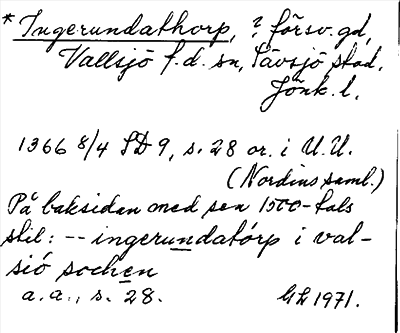 * Ingerundathorp, ? försv. gd,
Vallsjö f.d. sn, Sävsjö stad,
Jönk. l.
1366 8/4 SD 9, s. 28 or. i U.U.
(Nordins saml.)
På baksidan med sen 1500-tals
stil: -- ingerundatórp i val-
siö sochen
a.a., s. 28. GL 1971.